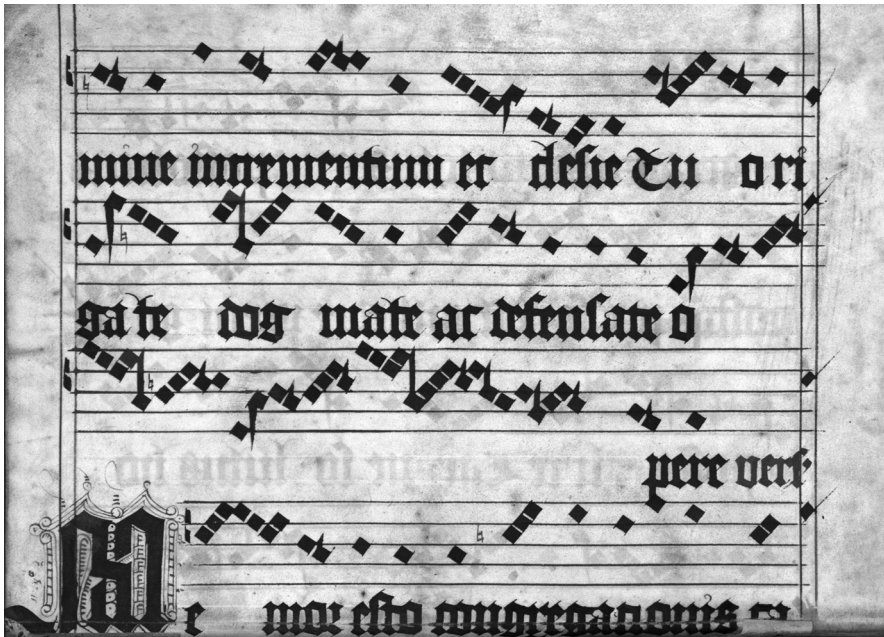 mine incrementum et desu e Tu o ri
ga te dog mate ac defensate o
pere vers
Me mor esto congregationis tu